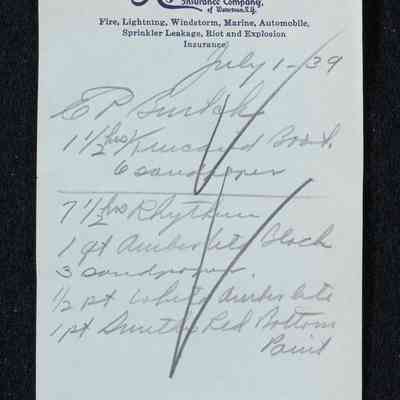 Insurance Company,
of Watertown, N.Y.
Fire, Lightning, Windstorm, Marine, Automobile,
Sprinkler Leakage, Riot and Explosion
Insurance
July 1-39
E P
1 1/2 hrs Kincaid Boat.
6 sandpaper
7 1/2 hrs Rhythm
1 qt Amberlite Black
3 sandpaper.
1/2 pt White Amberlite
1 pt Smiths Red Bottom
Paint